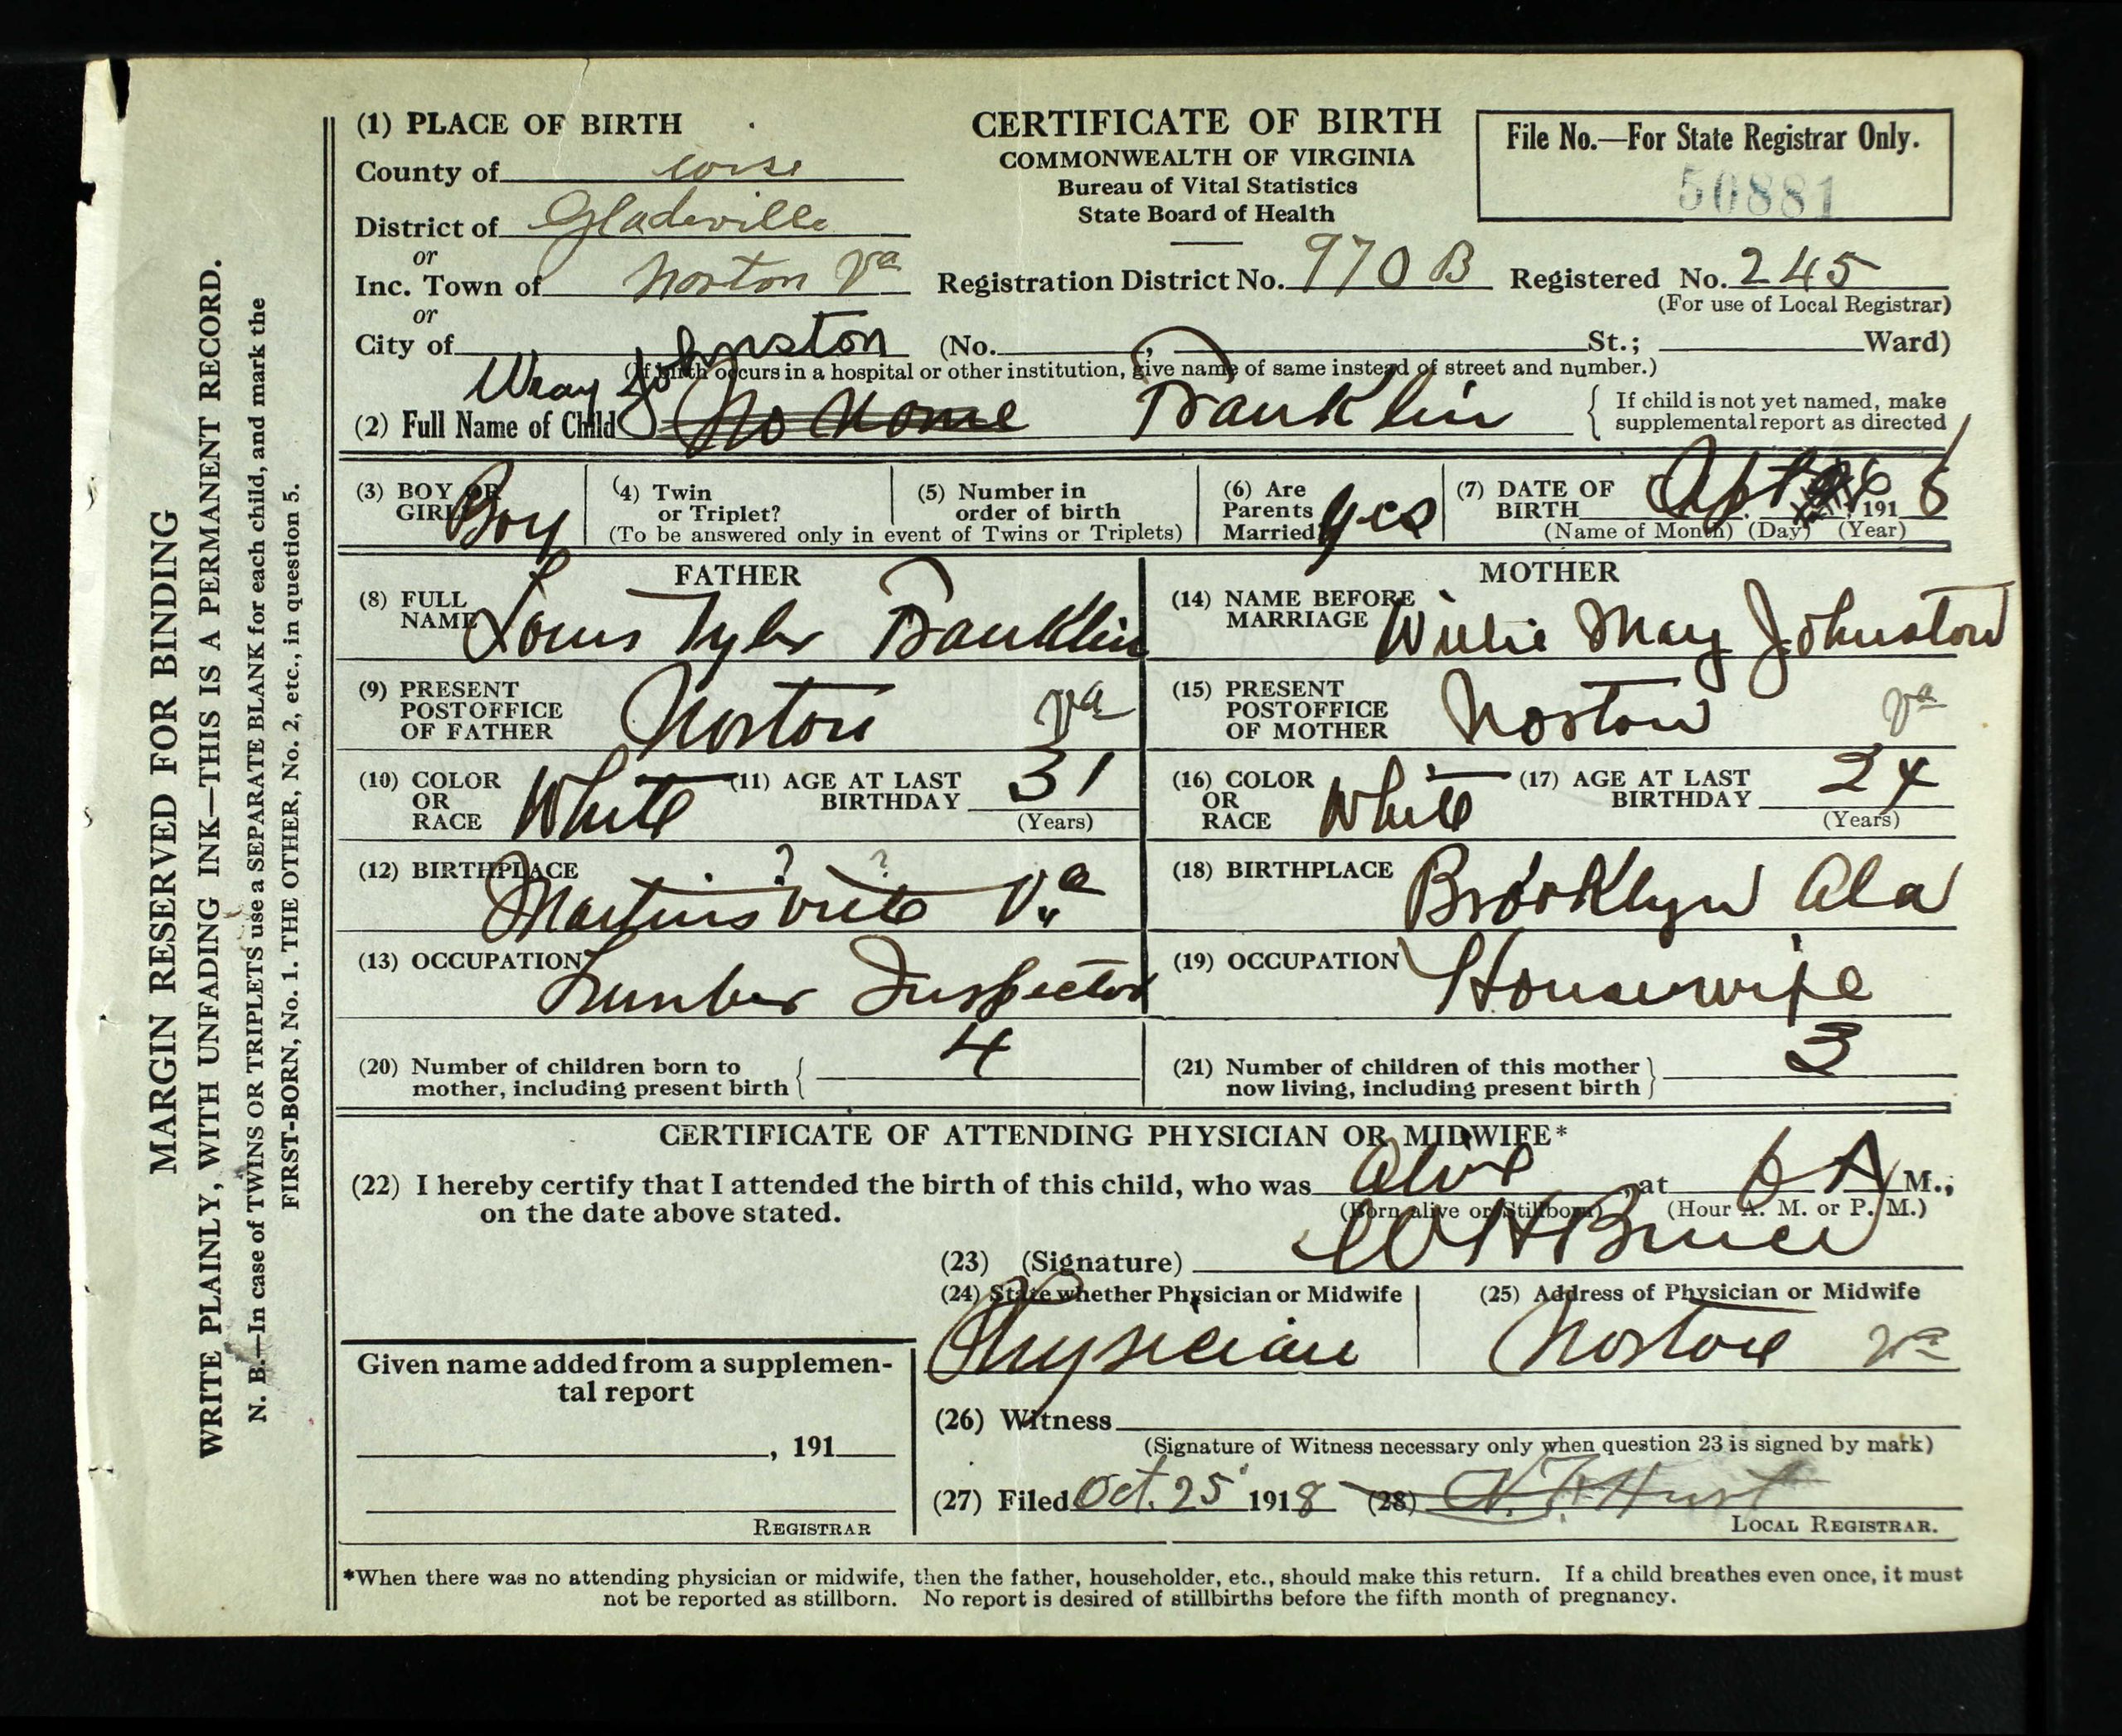 (1) PLACE OF BIRTH
County of Wise
District of Gladeville
or
Inc. Town of Norton Va
or
City of
CERTIFICATE OF BIRTH
COMMONWEALTH OF VIRGINIA
Bureau of Vital Statistics
State Board of Health
File No.—For State Registrar Only.
50881
Registration District No. 970 B Registered No. 245
(For use of Local Registrar)
(No. , St.; Ward)
(If birth occurs in a hospital or other institution, give name of same instead of street and number.)
Wray Johnston
(2) Full Name of Child No Name Franklin
If child is not yet named, make
supplemental report as directed
(3) BOY OR GIRL Boy
(4) Twin or Triplet?
(5) Number in order of birth
(To be answered only in event of Twins or Triplets)
(6) Are Parents Married yes
(7) DATE OF BIRTH 6 191 8
(Name of Month) (Day) (Year)
FATHER
(8) FULL NAME Louis Tyler Franklin
(9) PRESENT POSTOFFICE OF FATHER Norton Va
(10) COLOR OR RACE White (11) AGE AT LAST BIRTHDAY 31
(Years)
(12) BIRTHPLACE Martinsville Va ? ?
(13) OCCUPATION Lumber Inspector
MOTHER
(14) NAME BEFORE MARRIAGE Willie May Johnston
(15) PRESENT POSTOFFICE OF MOTHER Norton Va
(16) COLOR OR RACE White (17) AGE AT LAST BIRTHDAY 24
(Years)
(18) BIRTHPLACE Brooklyn Ala
(19) OCCUPATION Housewife
(20) Number of children born to
mother, including present birth 4
(21) Number of children of this mother
now living, including present birth 3
CERTIFICATE OF ATTENDING PHYSICIAN OR MIDWIFE*
(22) I hereby certify that I attended the birth of this child, who was Alive, at 6 A M.,
(Born alive or Stillborn) (Hour A. M. or P. M.)
on the date above stated.
(23) (Signature) W H Bruce
(24) State whether Physician or Midwife
Physician
(25) Address of Physician or Midwife
Norton Va
Given name added from a supplemen-
tal report
, 191
REGISTRAR
(26) Witness
(Signature of Witness necessary only when question 23 is signed by mark)
(27) Filed Oct. 25 1918 (28) Hurst
LOCAL REGISTRAR.
*When there was no attending physician or midwife, then the father, householder, etc., should make this return. If a child breathes even once, it must
not be reported as stillborn. No report is desired of stillbirths before the fifth month of pregnancy.
MARGIN RESERVED FOR BINDING
WRITE PLAINLY, WITH UNFADING INK—THIS IS A PERMANENT RECORD.
N. B.—In case of TWINS OR TRIPLETS use a SEPARATE BLANK for each child, and mark the
FIRST-BORN, No. 1. THE OTHER, No. 2, etc., in question 5.